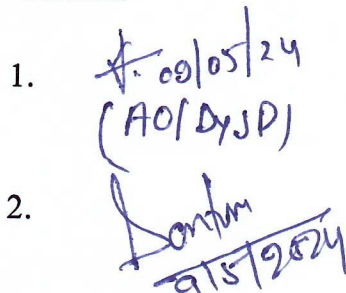 1. 09/05/24
(AO/DySP)
2.
9/5/2024